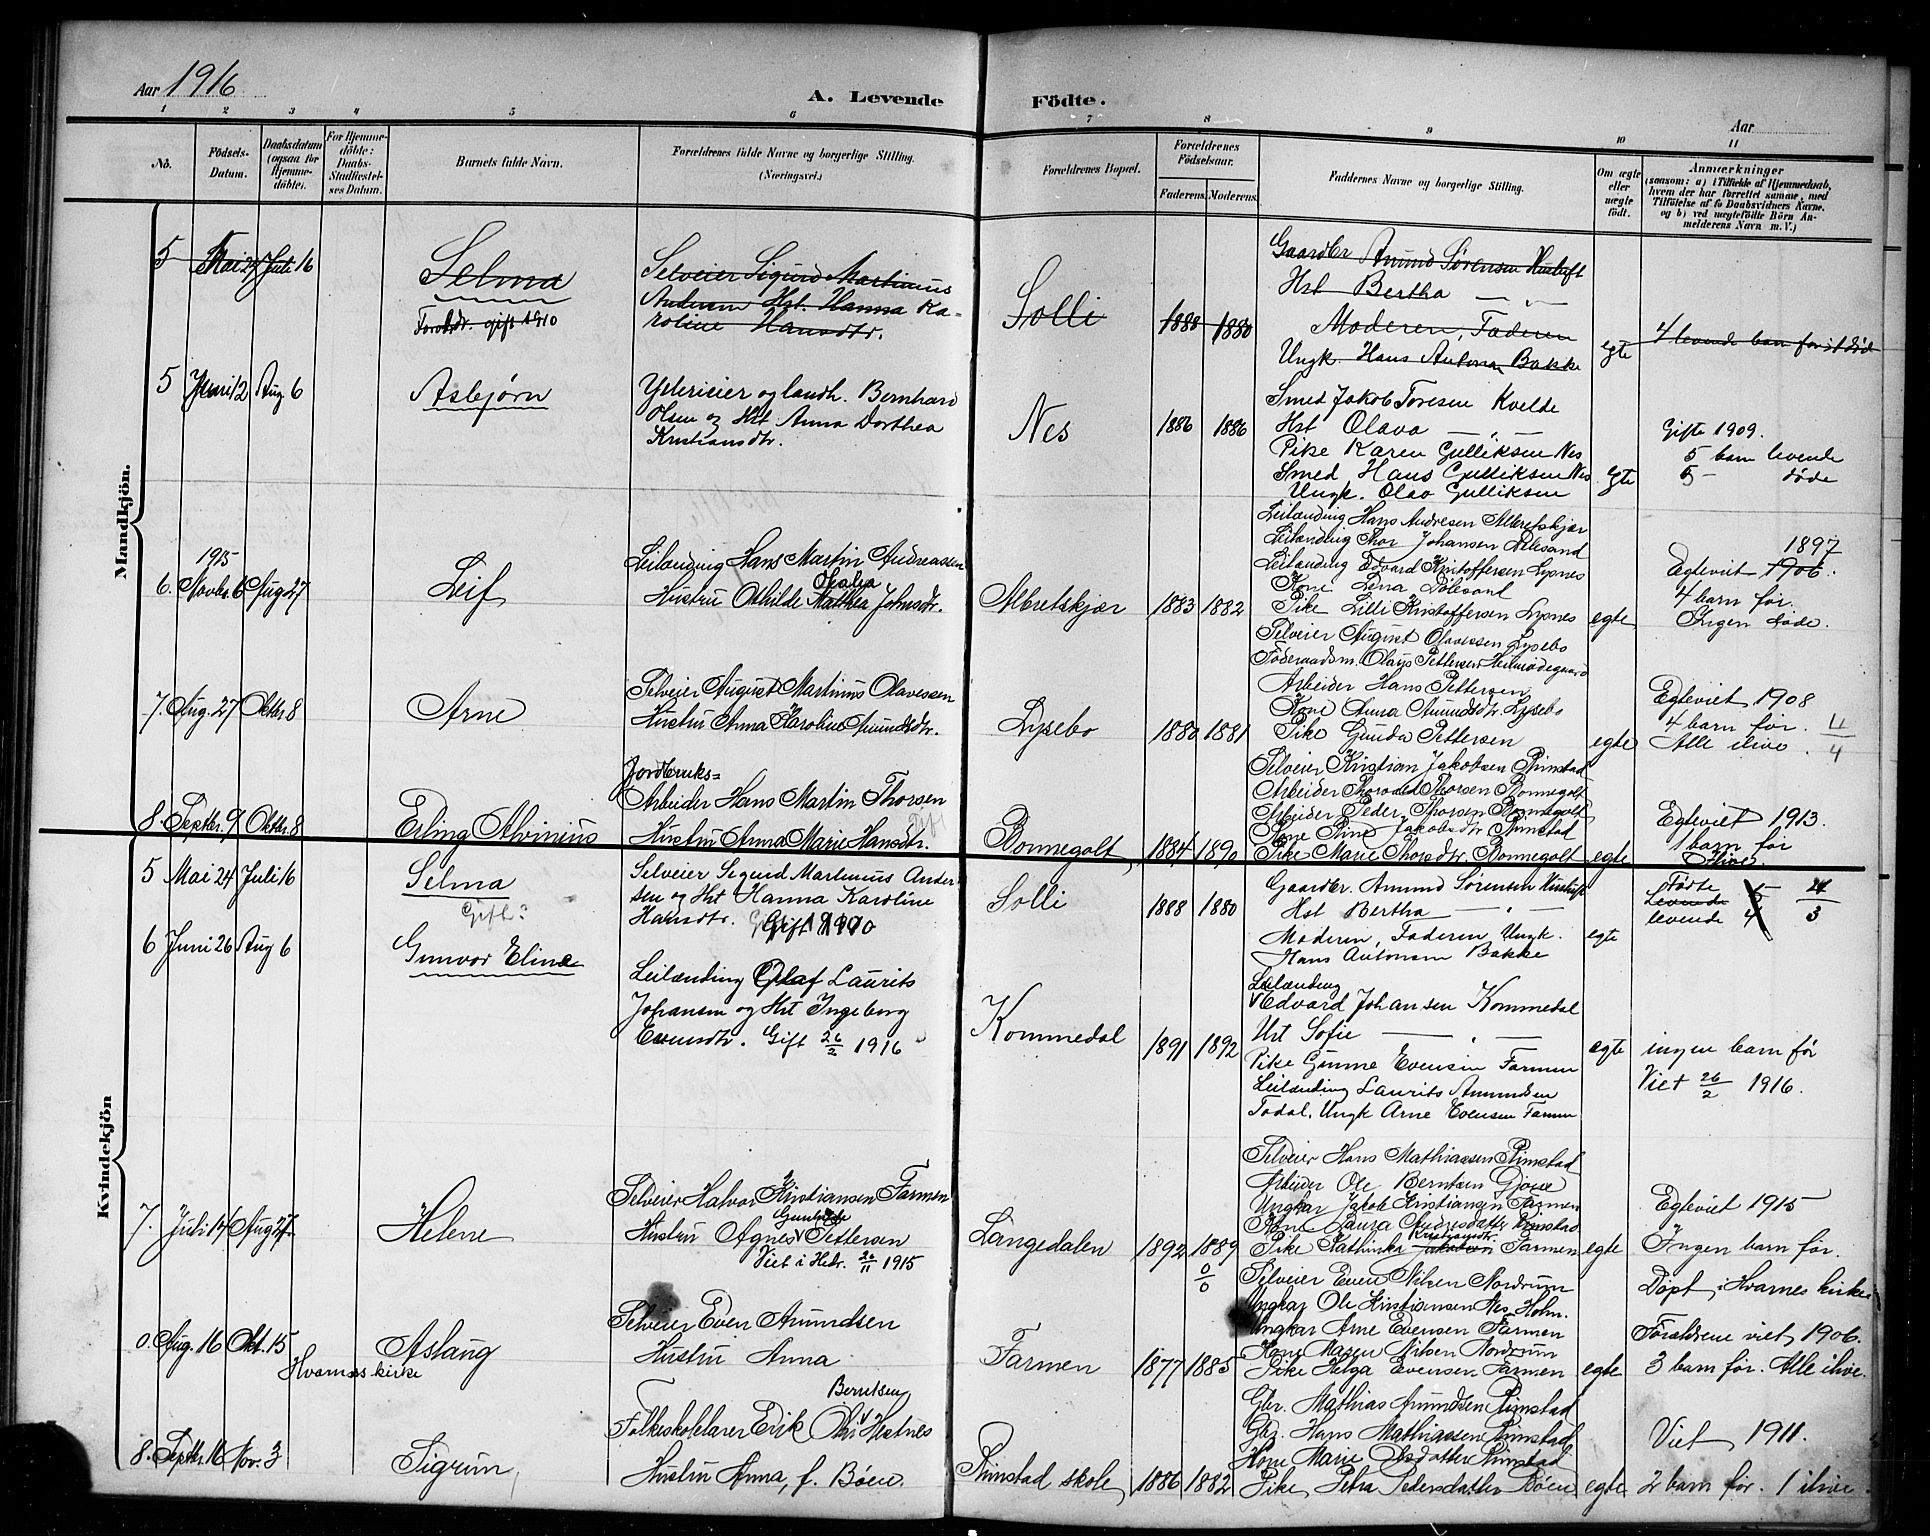 Aar 1916
A. Levende Födte.
Aar
1 2 3 4 5 6 7 8 9 10 11
No.
Födsels-Datum.
Daabsdatum (ogsaa for Hjemme-döbte).
For Hjemme-döbte: Daabs-Stadfæstel-ses Datum.
Barnets fulde Navn.
Forældrenes fulde Navne og borgerlige Stilling. (Næringsvei.)
Forældrenes Bopæl.
Forældrenes Födselsaar.
Faderens. Moderens.
Faddernes Navne og borgerlige Stilling.
Om ægte eller uægte födt.
Anmærkninger
(saasom: a) i Tilfælde af Hjemmedaab, hvem der har forrettet samme, med Tilföielse af to Daabsvidners Navne. og b) ved uægtefödte Börn An-melderens Navn m.V.)
Mandkjön.
5 Mai 24 Juli 16
Selma
Foreldr. gift 1910
Selveier Sigurd Martinius
Andersen Hst. Hanna Ka-
roline Hansdtr.
Solli
1888 1880
Gaardbr Amund Sørensen Huslyft
Hst Bertha — " —
Moderen, Faderen
Ungk. Hans Antonsen Bakke
egte
4 levende barn før 1 død
5 Juni 12 Aug 6
Asbjørn
Ytereier og landh. Bernhard
Olsen og Hst Anna Dorthea
Kristiansdtr.
Nes
1886 1886
Smed Jakob Toresen Kvelde
Hst Olava — " —
Pike Karen Gulliksen Nes
Smed Hans Gulliksen Nes
Ungk. Olav Gulliksen
egte
Gifte 1909.
5 barn levende
5 — døde
1915
6. Novbr. 6 Aug 27
Leif
Leilænding Hans Martin Andreassen
Hustru Othilde Mathea Johnsdtr.
Albretskjær
1883 1882
Leilænding Hans Andresen Albretskjær
Leilænding Thor Johansen Dølesand
Leilænding Edvard Kristoffersen Lysnes
Kone Lena Dølesand
Pike Lilli Kristoffersen Lysnes
egte
1897
Egteviet 1906.
4 barn før.
Ingen døde.
7. Aug. 27 Oktbr 8
Arne
Selveier August Martinius Olavessen
Hustru Anna Karoline Amundsdtr.
Lysebo
1880 1881
Selveier August Olavessen Lysebo
Føderaadsm. Olaus Pettersen
Arbeider Hans Pettersen
Kone Anna Amundsdtr. Lysebo
Pike Gunda Pettersen
egte
Egteviet 1908
4 barn før.
Alle ilive.
4
8. Septbr. 9 Oktbr. 8
Erling Alvinius
Jordbruks=
Arbeider Hans Martin Thorsen
Hustru Anna Marie Hansdtr.
Bonnegolt
1884 1890
Selveier Kristian Jakobsen Rimstad
Arbeider Thorvald Thorsen Bonnegolt
Arbeider Peder Thorsen Bonnegolt
Kone Jakobsdtr Rimstad
Pike Marie Thorsdtr. Bonnegolt
egte
Egteviet 1913.
1 barn før
ilive.
Kvindekjön
5 Mai 24 Juli 16
Selma
Gift?
Selveier Sigurd Martinius Ander-
sen og Hst Hanna Karoline
Hansdtr. Gift 1910
Solli
1888 1880
Gaardbr. Amund Sørensen Huslyft
Hst Bertha — " —
Moderen, Faderen, Ungk.
Hans Antonsen Bakke
egte
Fødte 5
Levende
levende 4
4
3
6 Juni 26 Aug 6
Gunvor Eline
Leilænding Olaf Laurits
Johansen og Hst Ingeborg
Evensdtr. Gift 26/2 1916
Kommedal
1891 1892
Leilænding
Edvard Johansen Kommedal
Hst Sofie — " —
Pike Gunne Evensen Farmen
Leilænding Laurits Amundsen
Todal, Ungk Arne Evensen Farmen
egte
ingen barn før
Viet 26/2 1916.
7. Juli 14 Aug 27
Helene
Selveier Halvor Kristiansen Farmen
Hustru Agnes Gunhilde Pettersen
Viet i Hedr. 26/11 1915
Langedalen
1892 1889
0/0
Selveier Hans Mathiassen Rimstad
Arbeider Ole Berntsen Gone
Ungkar Jakob Kristiansen Farmen
Kone Laura Andresdatter Rimstad
Pike Kathinka Kristiansdtr Jakobsen Farmen
egte
Egteviet 1915
Ingen barn før.
0. Aug. 16 Okt. 15
Hvarnes kirke
Aslaug
Selveier Even Amundsen
Hustru Anna
Farmen
1877 1885
Selveier Even Nilsen Nordrum
Ungkar Ole Kristiansen Nes, Holm.
Ungkar Arne Evensen Farmen
Kone Maren Nilsen Nordrum
Pike Helga Evensen Farmen
egte
Døpt i Hvarnes kirke
Forældrene viet 1906.
3 barn før. Alle ilive.
8. Septbr. 16 Nov. 3
Sigrun
Berntsen
Folkeskolelærer Erik Hestnes
Hustru Anna, f. Bøen.
Rimstad skole
1886 1882
Gbr. Mathias Amundsen Rimstad
Gbr. Hans Mathiassen Rimstad
Kone Marie Olsdatter Rimstad
Pike Petra Pedersdatter Bøen
egte
Viet 1911.
2 barn før. 1 ilive.